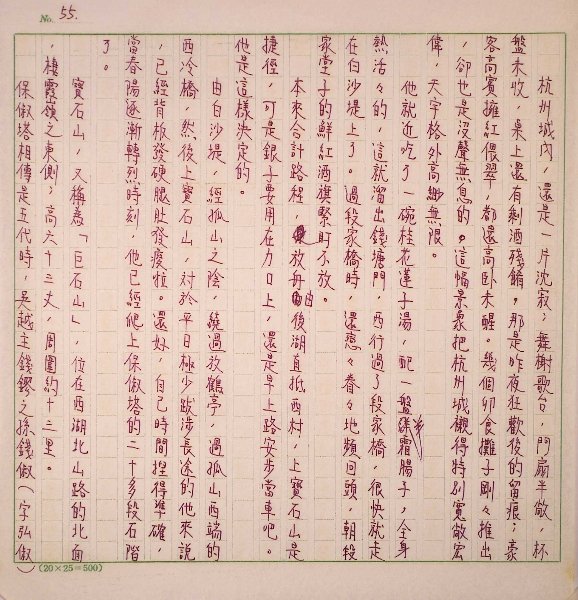 No. 55.
杭州城內，還是一片沈寂；舞榭歌台，門扇半敞，杯
盤未收，桌上還有剩酒殘餚。那是昨夜狂歡後的留痕；豪
客高賓擁紅偎翠，都還高卧未醒。幾個卯食攤子剛々推出
，卻也是沒聲無息的。這幅景象把杭州城襯得特別寬敞宏
偉，天宇格外高緲無限。
他就近吃了一碗桂花蓮子湯，配一盤霜腸子，全身
熱活々的，這就溜出錢塘門，西行過了段家橋，很快就走
在白沙堤上了。過段家橋時，還戀々眷々地頻回頭，朝段
家堂子的鮮紅酒旗緊盯不放。
本來合計路程，放舟由後湖直抵西村，上寶石山是
捷徑，可是銀子要用在力口上，還是早上路安步當車吧。
他是這樣決定的。
由白沙堤，經孤山之陰，繞過放鶴亭，過孤山西端的
西冷橋，然後上寶石山，對於平日極少跋涉長途的他來說
，已經背板發硬腿肚發痠拉。還好，自己時間捏得準確，
當春陽逐漸轉烈時刻，他已經爬上保俶塔的二十多段石階
了。
寶石山，又稱為「巨石山」，位在西湖北山路的北面
，棲霞嶺之東側；高六十三丈，周圍約十三里。
保俶塔相傳是五代時，吳越主錢鏐之孫錢俶（字弘俶）
(20×25=500)